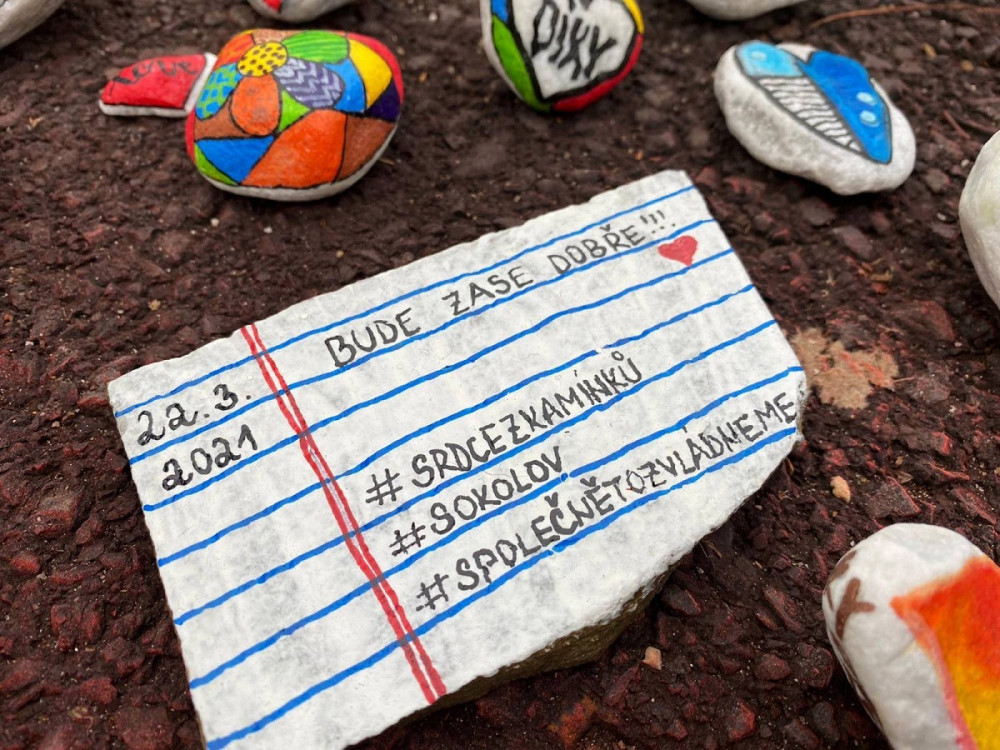 LOVE
DÍKY
22.3.
2021
BUDE ZASE DOBŘE!!!
#SRDCEZKAMÍNKŮ
#SOKOLOV
#SPOLEČNĚTOZVLÁDNEME